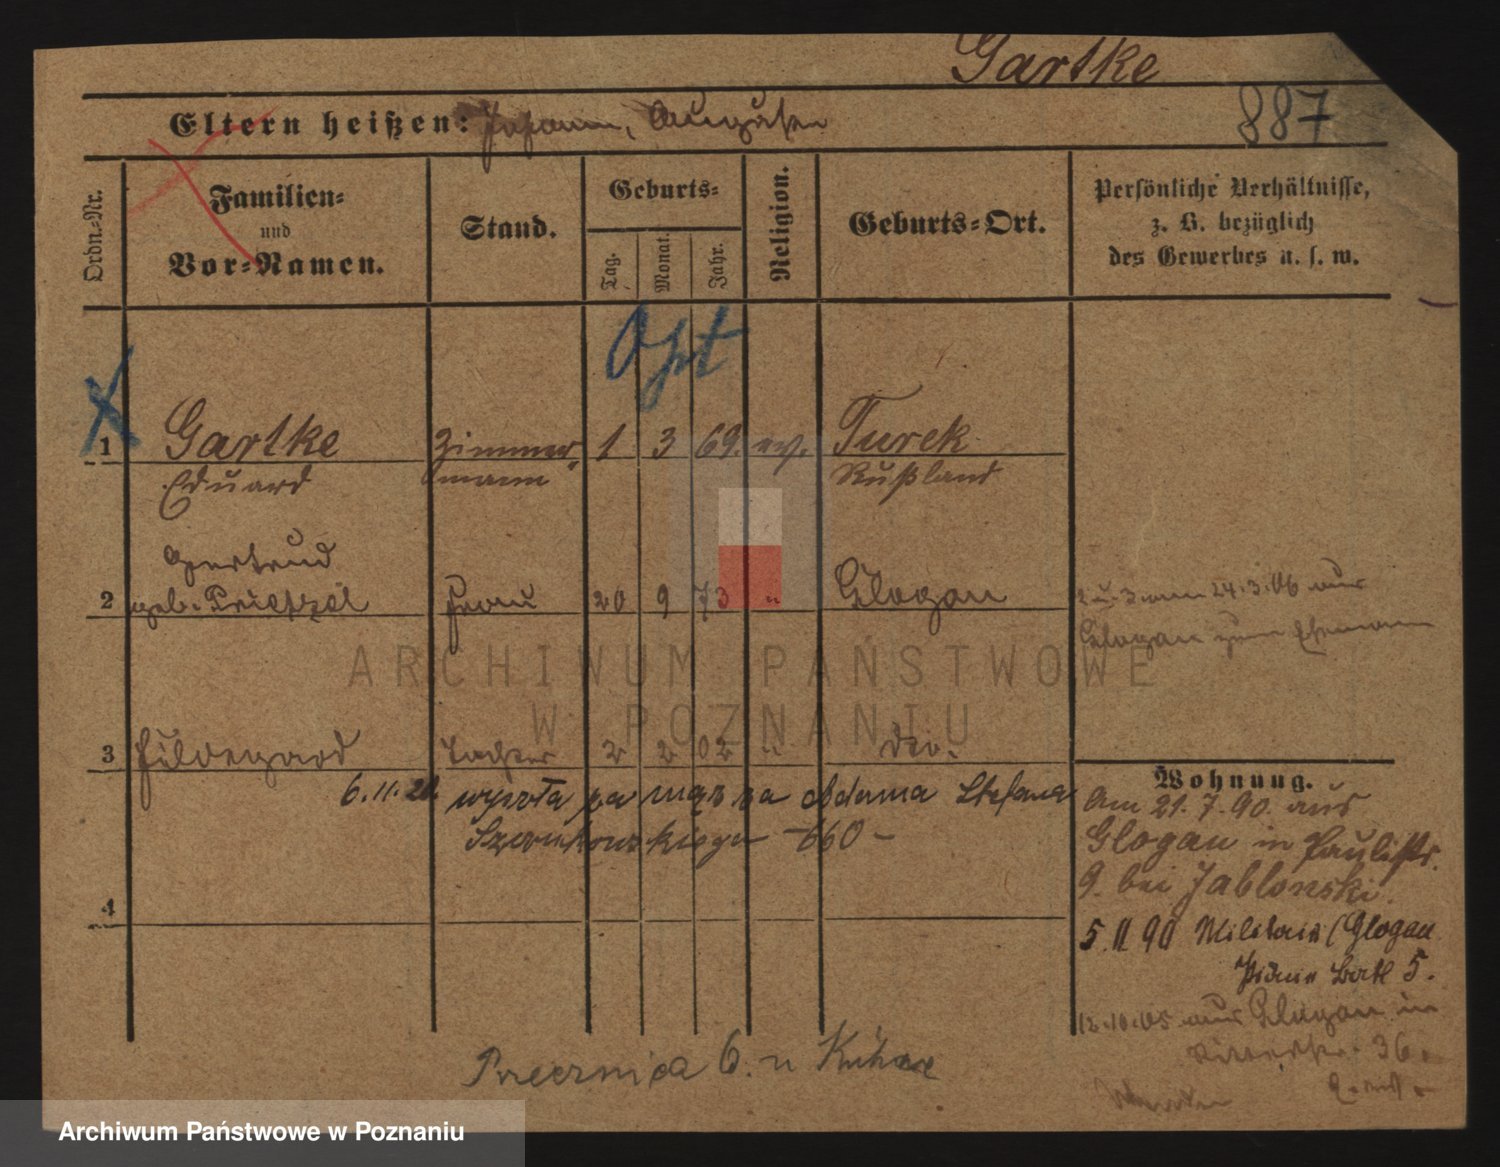 Gartke
887
Eltern heißen: Johann, Auguste
Ordn.-Nr.
Familien-
und
Vor-Namen.
Stand.
Geburts-
Tag.
Monat.
Jahr.
Religion.
Geburts-Ort.
Persönliche Verhältnisse,
z. B. bezüglich
des Gewerbes u. s. w.
Opt
1 Gartke Zimmer- 1 3 69. ev. Turek
Eduard mann Rußland
Gertrud
2 geb. Frau 20 9 73 " Glogau
2 u. 3 am 24.3.06 aus
Glogau zum Ehemann
3 Hildegard Tochter 2 2 02 " dto.
6.11.20 wyszła za mąż za Adama Stefana
660 –
4
Wohnung.
Am 21.7.90. aus
Glogau in Paulistr.
9. bei Jablonski.
5.11 90 Militair (Glogau
Pion Batl 5.
12.10.05 aus Glogau in
Ritterstr. 36.
6. u
ARCHIWUM PAŃSTWOWE
W POZNANIU
Archiwum Państwowe w Poznaniu